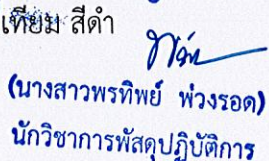 เทียม สีดำ
(นางสาวพรทิพย์ พ่วงรอด)
นักวิชาการพัสดุปฏิบัติการ